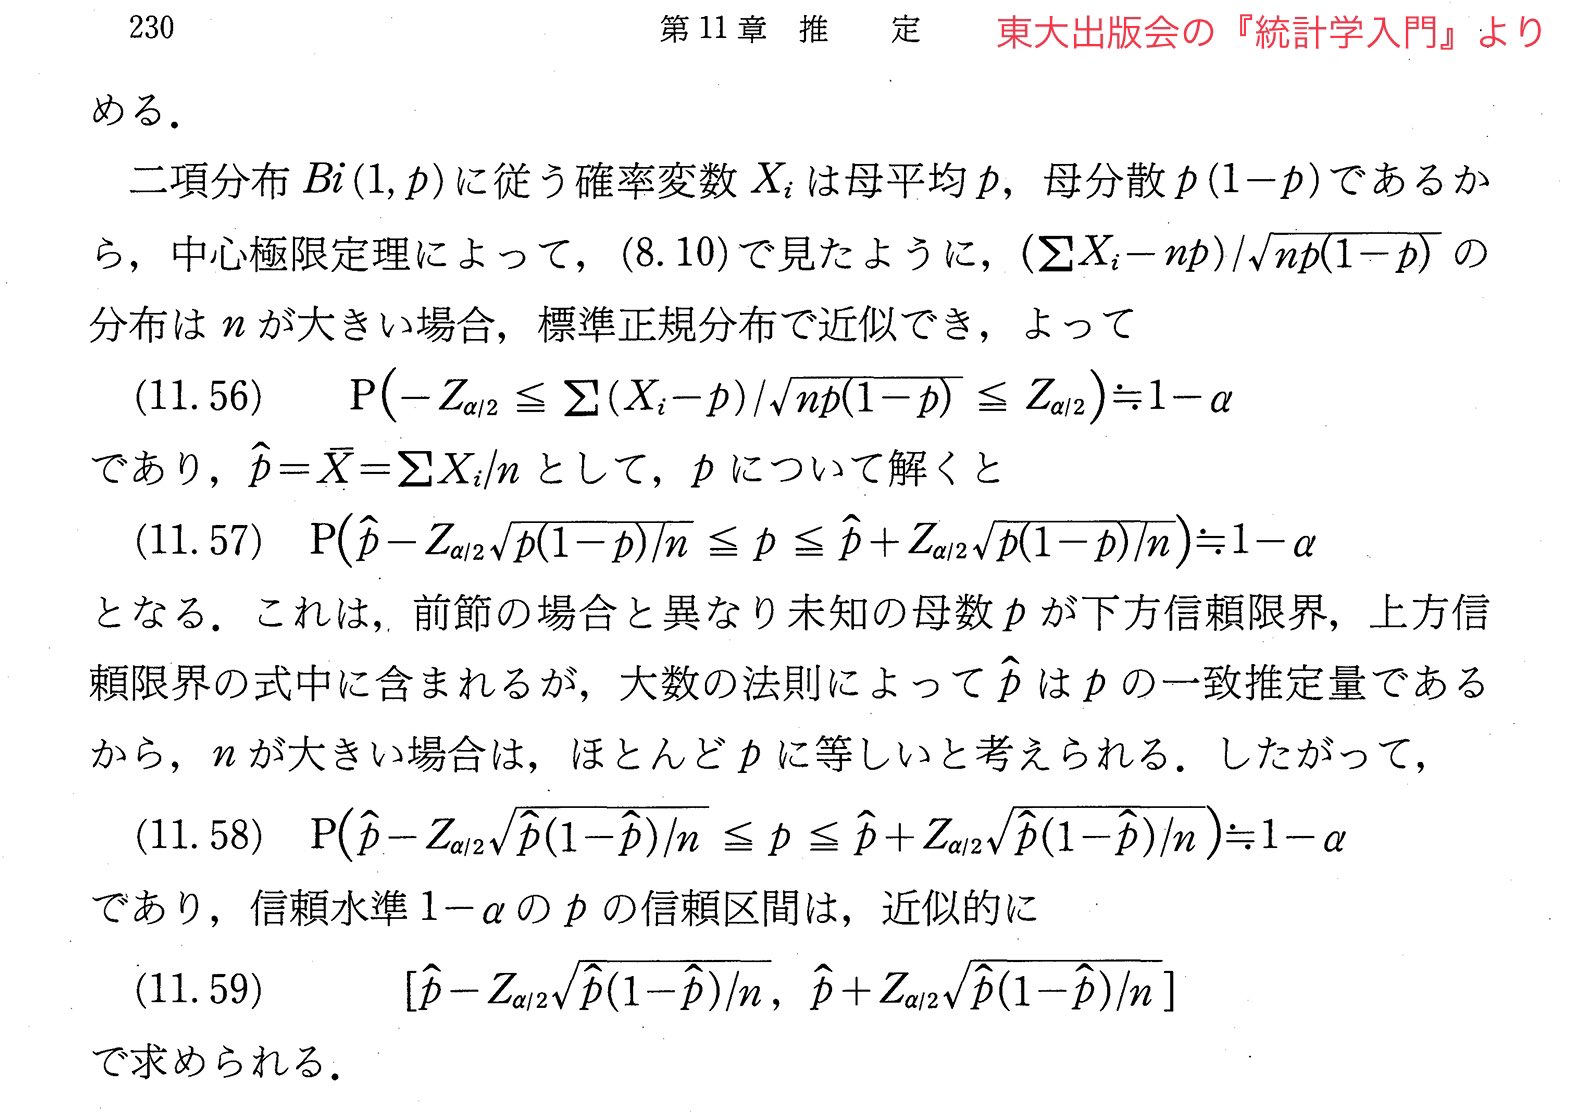 230
第11章 推 定
東大出版会の『統計学入門』より
める.
二項分布 Bi(1, p)に従う確率変数 Xᵢ は母平均p, 母分散p(1−p)であるか
ら, 中心極限定理によって, (8.10)で見たように, (∑Xᵢ−np)/√np(1−p) の
分布は n が大きい場合, 標準正規分布で近似でき, よって
(11.56) P(−Z_{α/2} ≦ ∑(Xᵢ−p)/√np(1−p) ≦ Z_{α/2})≒1−α
であり, p̂=X̄=∑Xᵢ/n として, p について解くと
(11.57) P(p̂−Z_{α/2}√p(1−p)/n ≦ p ≦ p̂+Z_{α/2}√p(1−p)/n)≒1−α
となる. これは, 前節の場合と異なり未知の母数p が下方信頼限界, 上方信
頼限界の式中に含まれるが, 大数の法則によってp̂ はp の一致推定量である
から, n が大きい場合は, ほとんどp に等しいと考えられる. したがって,
(11.58) P(p̂−Z_{α/2}√p̂(1−p̂)/n ≦ p ≦ p̂+Z_{α/2}√p̂(1−p̂)/n)≒1−α
であり, 信頼水準1−αのp の信頼区間は, 近似的に
(11.59) [p̂−Z_{α/2}√p̂(1−p̂)/n, p̂+Z_{α/2}√p̂(1−p̂)/n]
で求められる.